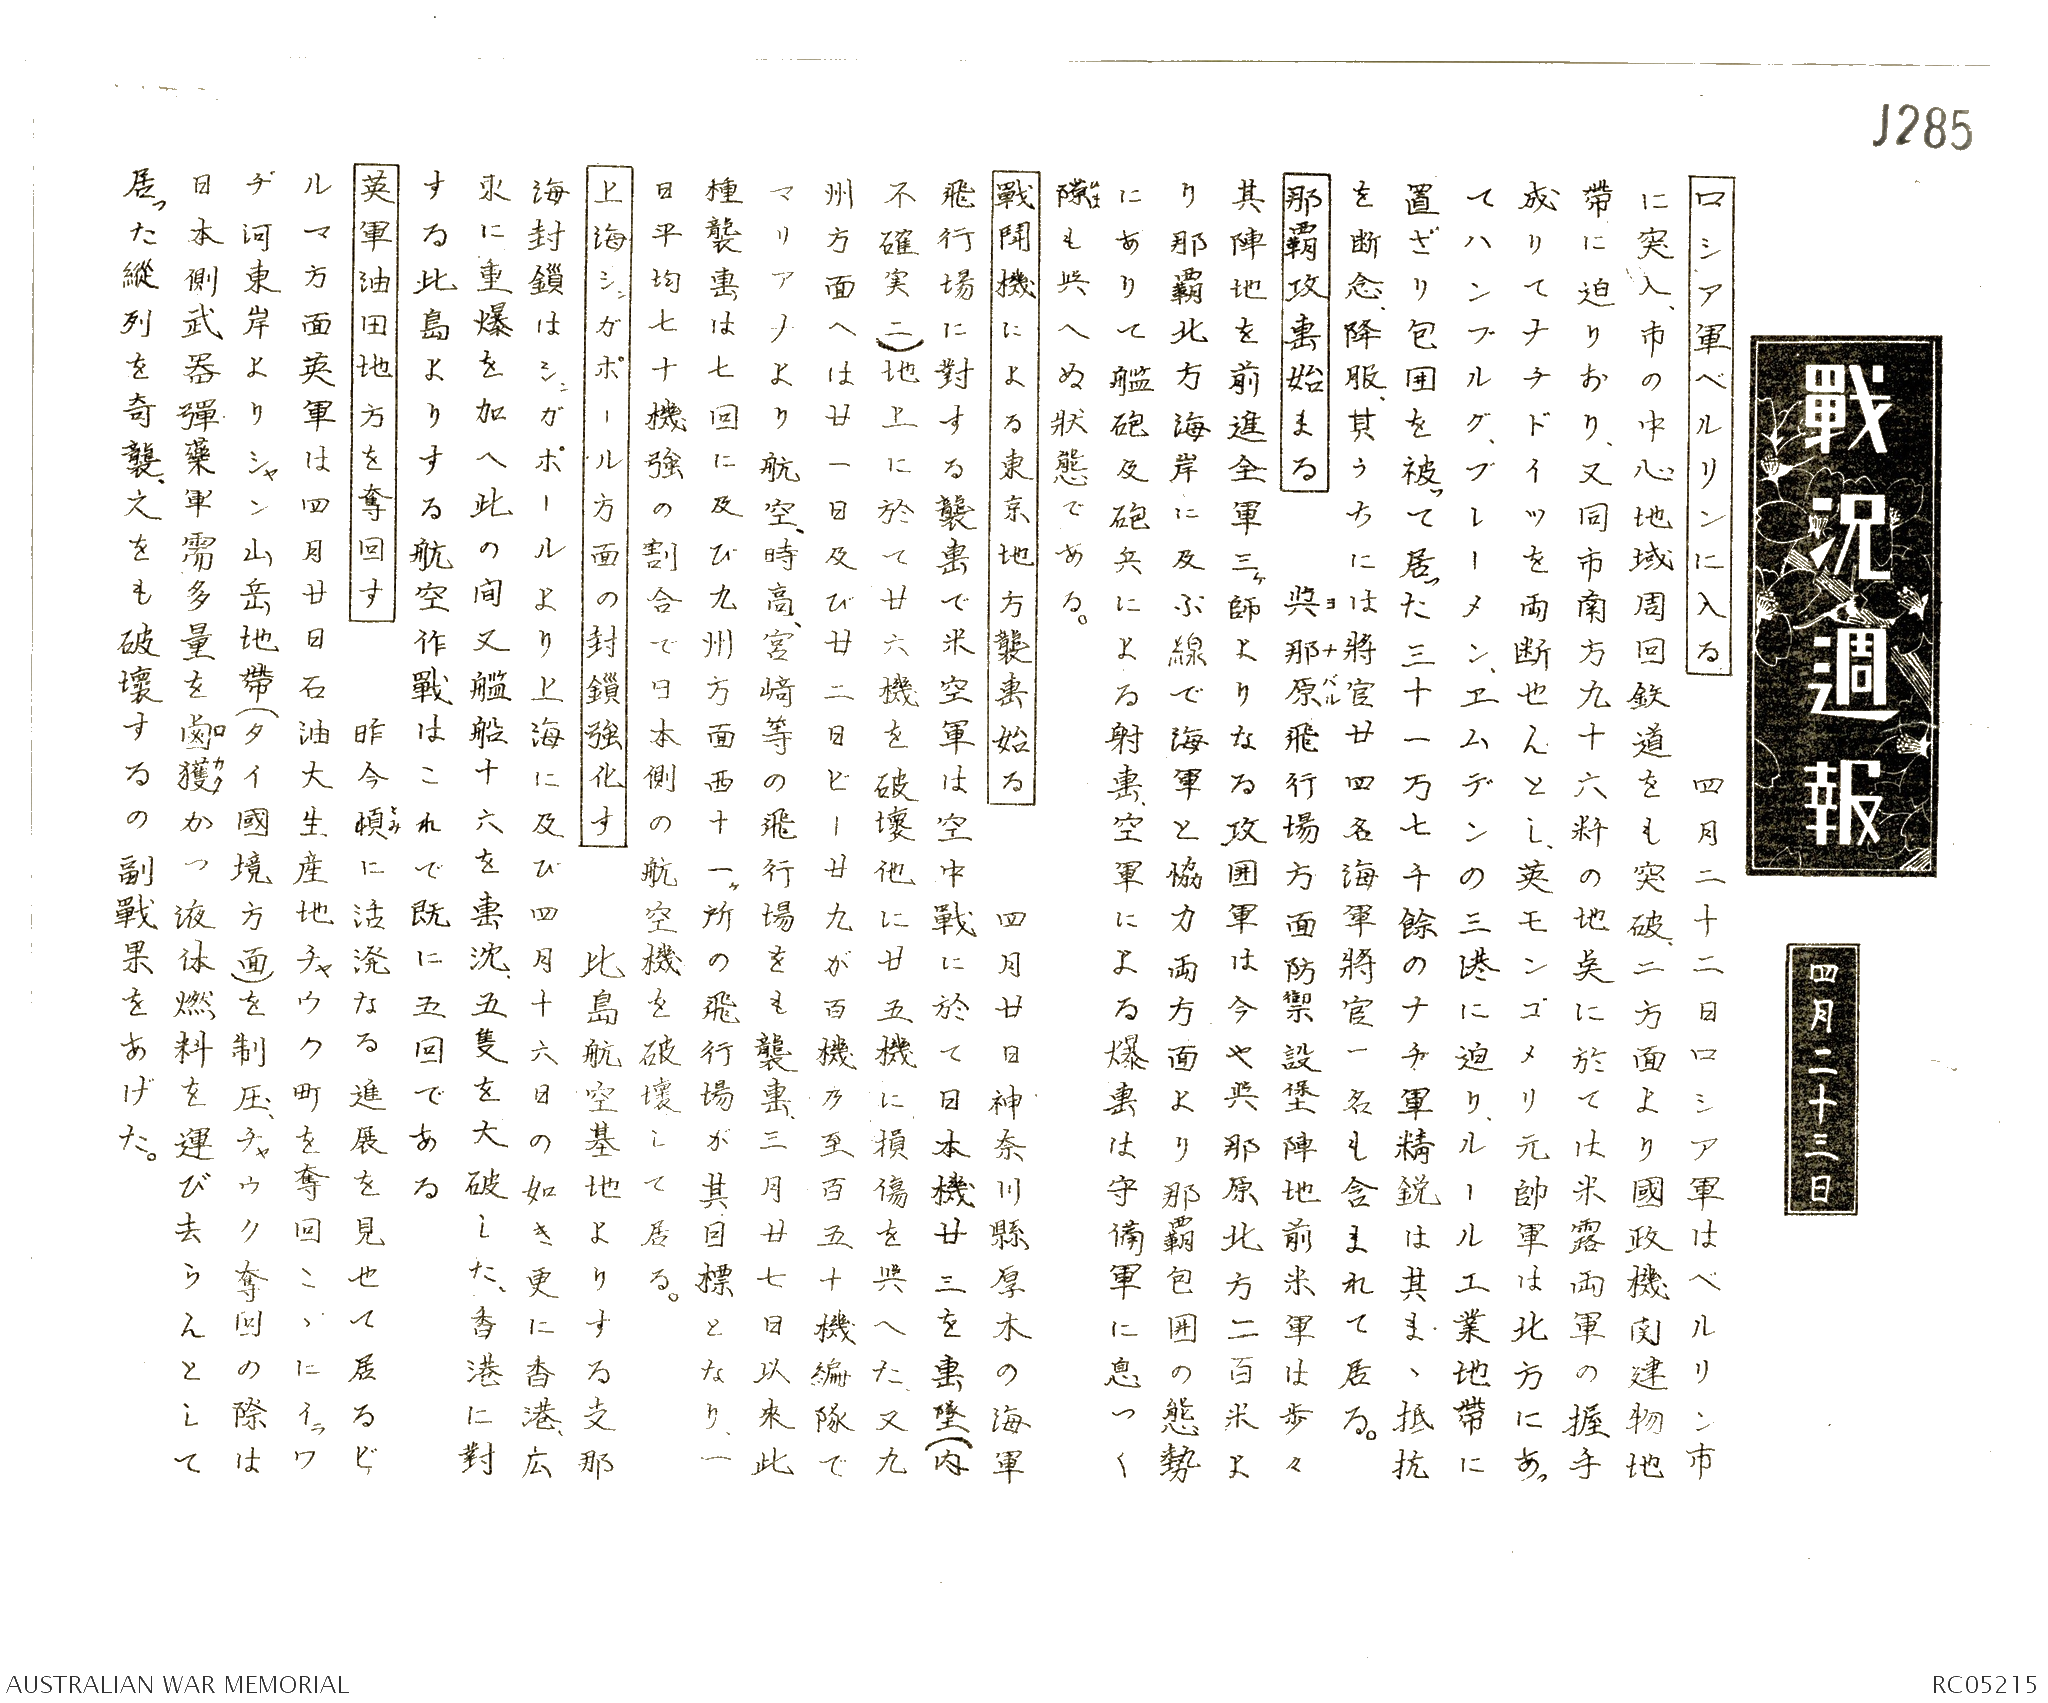 J285
戰況週報
四月二十三日
ロシア軍ベルリンに入る　四月二十二日ロシア軍はベルリン市
に突入、市の中心地域周回鉄道をも突破、二方面より國政機関建物地
帶に迫りおり、又同市南方九十六粁の地点に於ては米露両軍の握手
成りてナチドイツを両断せんとし、英モンゴメリ元帥軍は北方にあっ
てハンブルグ、ブレーメン、エムデンの三港に迫り、ルール工業地帶に
置ざり包囲を被って居った三十一万七千餘のナチ軍精鋭は其まゝ抵抗
を断念、降服、其うちには將官廿四名海軍將官一名も含まれて居る。
那覇攻撃始まる　與那原飛行場方面防禦設堡陣地前米軍は歩々
其陣地を前進全軍三ヶ師よりなる攻囲軍は今や與那原北方二百米よ
り那覇北方海岸に及ぶ線で海軍と協力両方面より那覇包囲の態勢
にありて艦砲及砲兵による射撃、空軍による爆撃は守備軍に息つく
隙も與へぬ狀態である。
戰鬪機による東京地方襲撃始る　四月廿日神奈川縣厚木の海軍
飛行場に對する襲撃で米空軍は空中戰に於て日本機廿三を撃墜(内
不確実二)地上に於て廿六機を破壞他に廿五機に損傷を與へた、又九
州方面へは廿一日及び廿二日ビー廿九が百機乃至百五十機編隊で
マリアナより航空、時高、宮﨑等の飛行場をも襲撃、三月廿七日以來此
種襲撃は七回に及び九州方面西十一ヶ所の飛行場が其目標となり、一
日平均七十機強の割合で日本側の航空機を破壞して居る。
上海シンガポール方面の封鎖強化す　比島航空基地よりする支那
海封鎖はシンガポールより上海に及び四月十六日の如き更に香港、広
東に重爆を加へ此の間又艦船十六を撃沈、五隻を大破した、香港に對
する此島よりする航空作戰はこれで既に五回である
英軍油田地方を奪回す　昨今頓に活溌なる進展を見せて居るビ
ルマ方面英軍は四月廿日石油大生産地チャウク町を奪回こゝにイラワ
ヂ河東岸よりシャン山岳地帶(タイ國境方面)を制圧、チャウク奪回の際は
日本側武器彈藥軍需多量を鹵獲かつ液体燃料を運び去らんとして
居った縱列を奇襲、之をも破壞するの副戰果をあげた。
AUSTRALIAN WAR MEMORIAL
RC05215